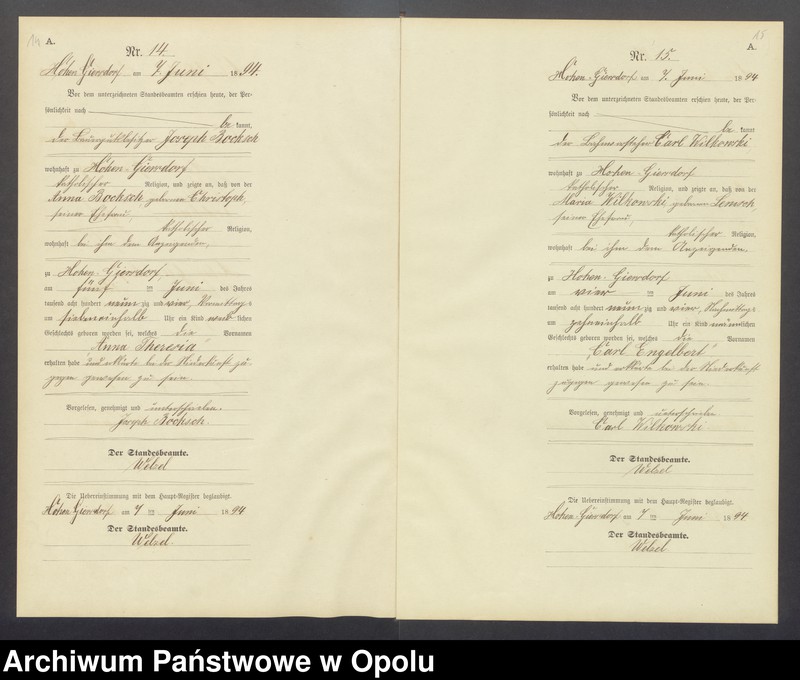 14
A.
Nr. 14.
Hohen-Giersdorf am 7. Juni 1894.
Vor dem unterzeichneten Standesbeamten erschien heute, der Per-
sönlichkeit nach
be kannt,
der Bauergutsbesitzer Joseph Bochsch
wohnhaft zu Hohen-Giersdorf
katholischer Religion, und zeigte an, daß von der
Anna Bochsch geborenen Christoph,
seiner Ehefrau,
katholischer Religion,
wohnhaft bei ihm dem Anzeigenden,
zu Hohen-Giersdorf
am fünf ten Juni des Jahres
tausend acht hundert neun zig und vier, Vormittags
um siebeneinhalb Uhr ein Kind weib lichen
Geschlechts geboren worden sei, welches die Vornamen
"Anna Theresia"
erhalten habe und erklärte bei der Niederkunft zu-
gegen gewesen zu sein.
Vorgelesen, genehmigt und unterschrieben.
Joseph Bochsch.
Der Standesbeamte.
Wetzel
Die Uebereinstimmung mit dem Haupt-Register beglaubigt.
Hohen-Giersdorf am 7 ten Juni 1894
Der Standesbeamte.
Wetzel.
15
A.
Nr. 15.
Hohen-Giersdorf am 7. Juni 1894
Vor dem unterzeichneten Standesbeamten erschien heute, der Per-
sönlichkeit nach
be kannt
der Carl Wilkowski
wohnhaft zu Hohen-Giersdorf
katholischer Religion, und zeigte an, daß von der
Maria Wilkowski geborenen
seiner Ehefrau,
katholischer Religion,
wohnhaft bei ihm dem Anzeigenden
zu Hohen-Giersdorf
am vier ten Juni des Jahres
tausend acht hundert neun zig und vier, Nachmittags
um zehneinhalb Uhr ein Kind männlichen
Geschlechts geboren worden sei, welches die Vornamen
"Carl Engelbert"
erhalten habe und erklärte bei der Niederkunft
zugegen gewesen zu sein.
Vorgelesen, genehmigt und unterschrieben
Carl Wilkowski
Der Standesbeamte.
Wetzel
Die Uebereinstimmung mit dem Haupt-Register beglaubigt.
Hohen-Giersdorf am 7 ten Juni 1894
Der Standesbeamte.
Wetzel
Archiwum Państwowe w Opolu